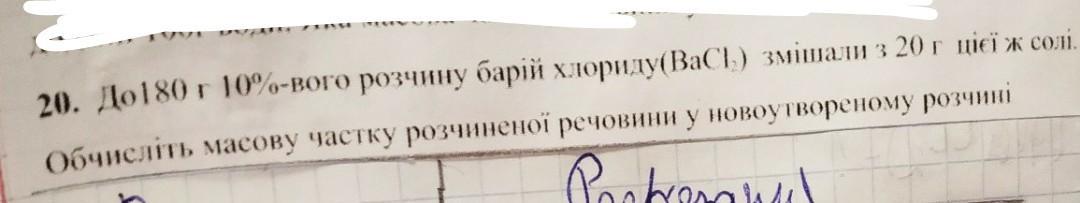 20. До180 г 10%-вого розчину барій хлориду(BaCl₂) змішали з 20 г цієї ж солі.
Обчисліть масову частку розчиненої речовини у новоутвореному розчині